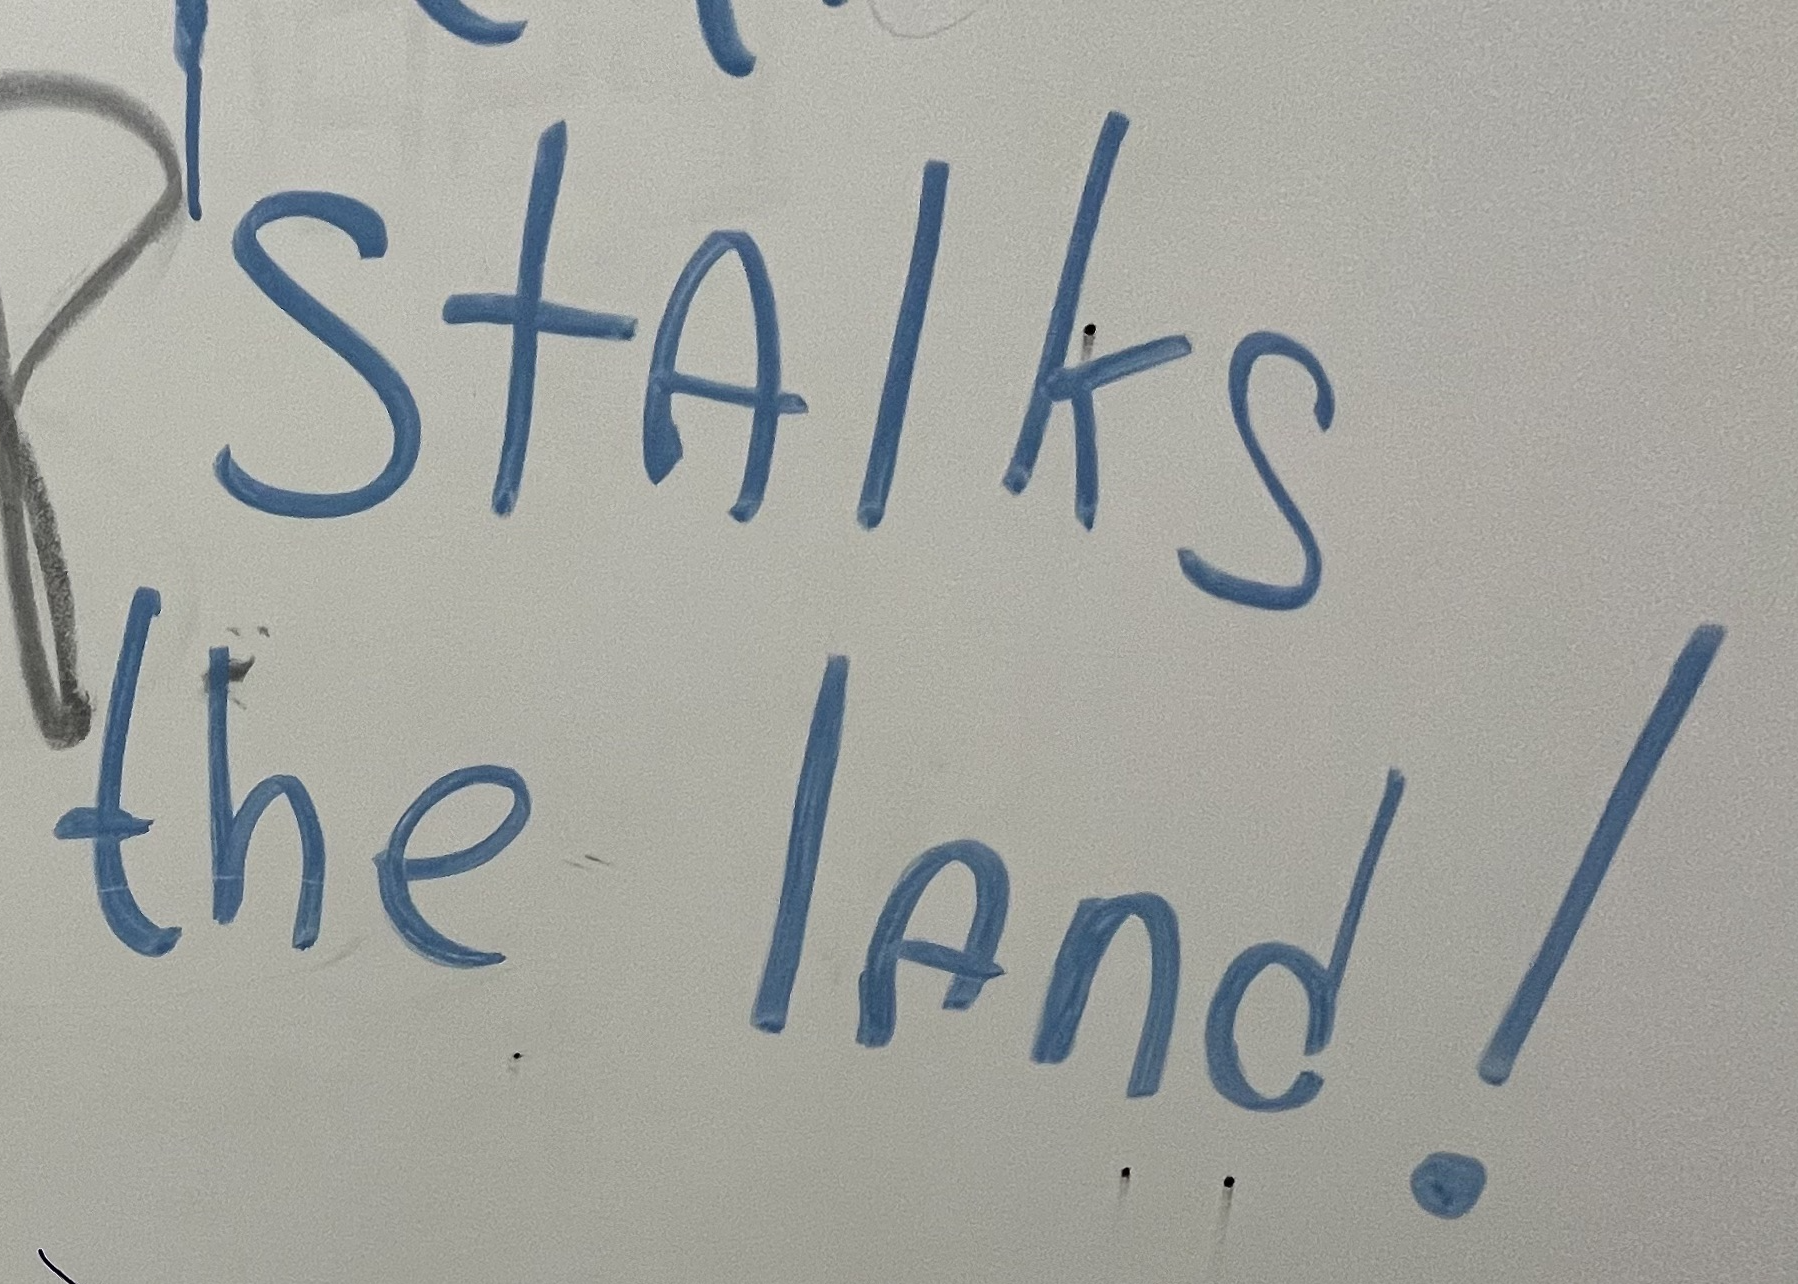 stAlks
the lAnd!